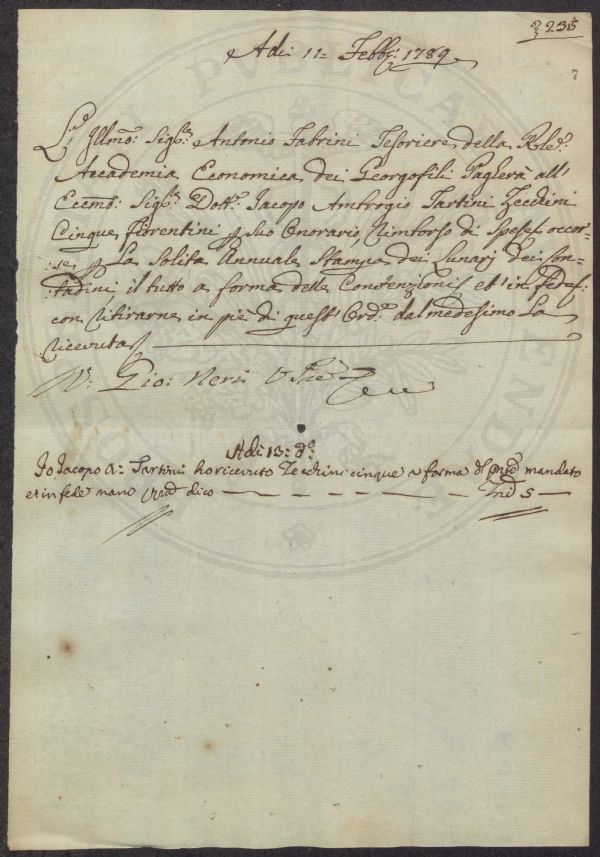 235
7
Adi 11= Febb: 1789
L'Illmo: Sigre: Antonio Fabrini Tesoriere della Rle:
Accademia Economica dei Georgofili Pagherà all'
Eccmo: Sigr: Dottr: Iacopo Ambrogio Tartini Zecchini
Cinque fiorentini p suo Onorario, Rimborso di Spese occor-
:se p La Solita Annuale Stampa dei Lunarj dei Con-
:tadini, il tutto a forma delle Convenzioni et in fede
con Ritirarne in piè di quest' Ord:e dal medesimo La
Ricevuta
Gio: Neri V. Pre
Adì 13: do:
Io Iacopo A: Tartini ho ricevuto Zecchini cinque a forma del mandato
et in fede mano dico — 5 —
PUBLICAE